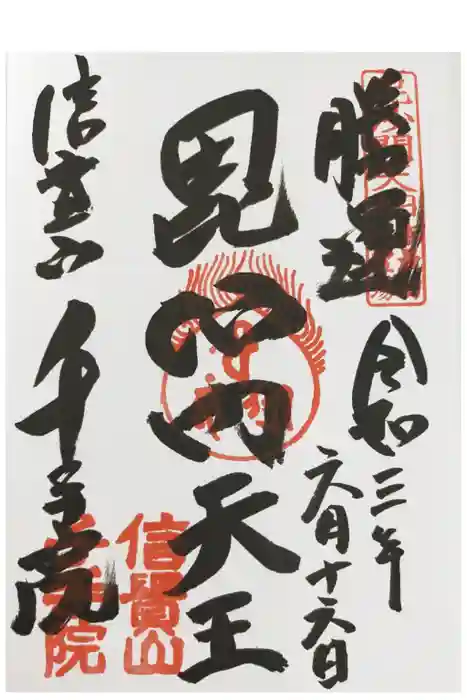 勝運
令和三年
六月十六日
毘沙門天王
信貴山 千手院
信貴山
千手院